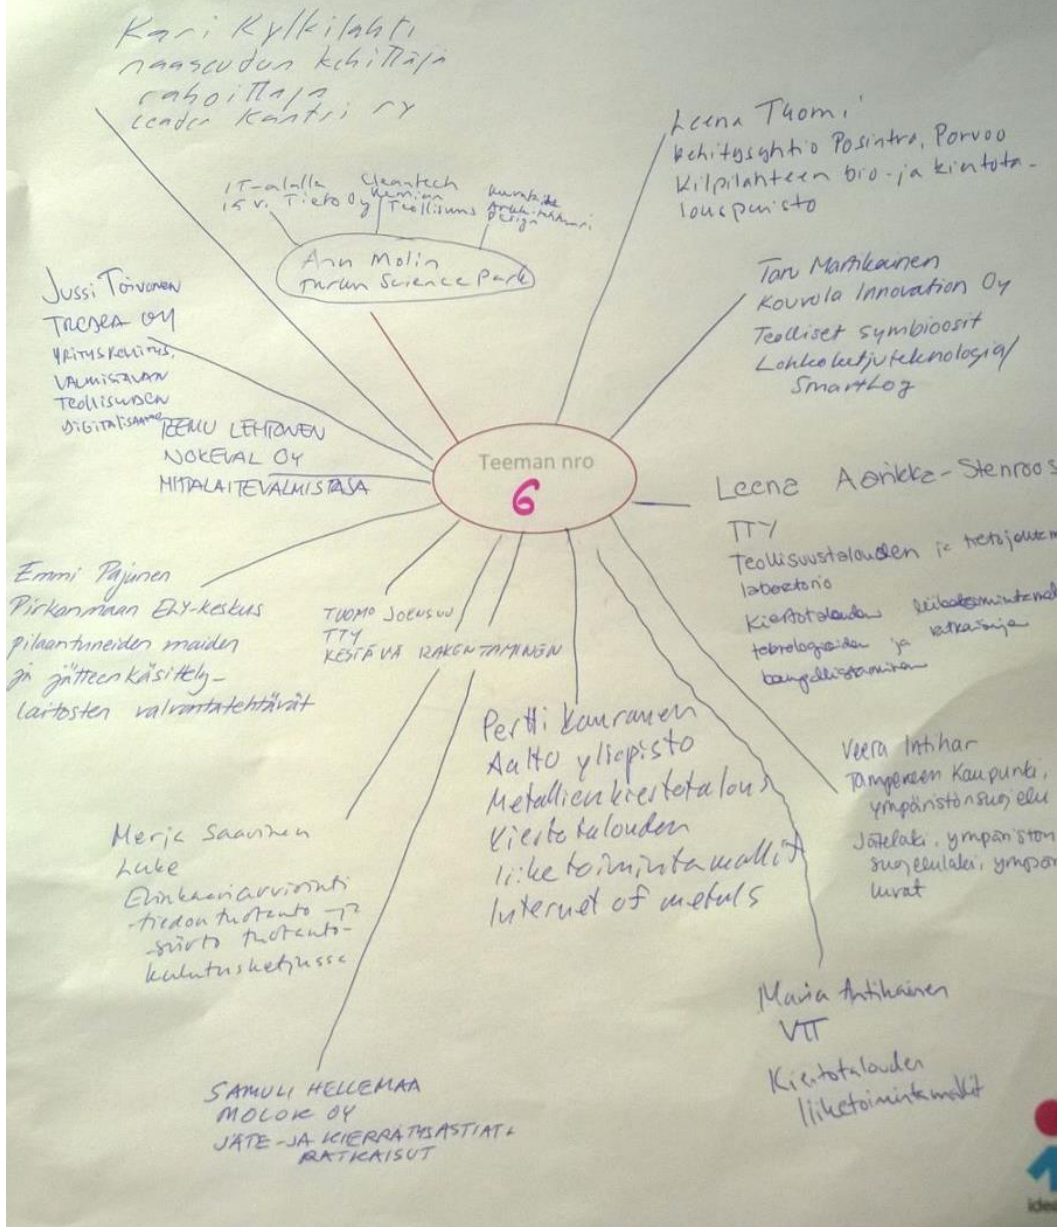 Kari Kylkilahti
maaseudun kehittäjä
rahoittaja
Leader Kantri ry
Leena Tuomi
kehitysyhtiö Posintra, Porvoo
Kilpilahteen bio- ja kiertota-
louspuisto
IT-alalla
15 v. Tieto Oy
Cleantech
Kemian
Teollisuus
Design
Ann Molin
Turun Science Park
Taru Martikainen
Kouvola Innovation Oy
Teolliset symbioosit
Lohkoketjuteknologia/
SmartLog
Jussi Toivonen
TREDEA OY
YRITYSKEHITYS,
VALMISTAVAN
TEOLLISUUDEN
TEEMU LEHTONEN
NOKEVAL OY
MITTALAITEVALMISTAJA
Teeman nro
6
Leena Aarikka-Stenroos
TTY
Teollisuustalouden ja
laboratorio
Kiertotalouden
teknologioiden ja ratkaisuja
Emmi Pajunen
Pirkanmaan ELY-keskus
pilaantuneiden maiden
ja jätteenkäsittely-
laitosten valvontatehtävät
TUOMO JOENSUU
TTY
KESTÄVÄ RAKENTAMINEN
Pertti Kauranen
Aalto yliopisto
Metallien kiertotalous
Kiertotalouden
liiketoimintamallit
Internet of metals
Veera Intihar
Tampereen Kaupunki,
ympäristönsuojelu
Jätelaki, ympäristön
suojelulaki, ympär
luvat
Merja Saarinen
Luke
Elinkaariarviointi
-tiedon tuotanto ja
-siirto tuotanto-
kulutusketjussa
Maria Antikainen
VTT
Kiertotalouden
liiketoimintamallit
SAMULI HELLEMAA
MOLOK OY
JÄTE- JA KIERRÄTYSASTIAT &
RATKAISUT
idea